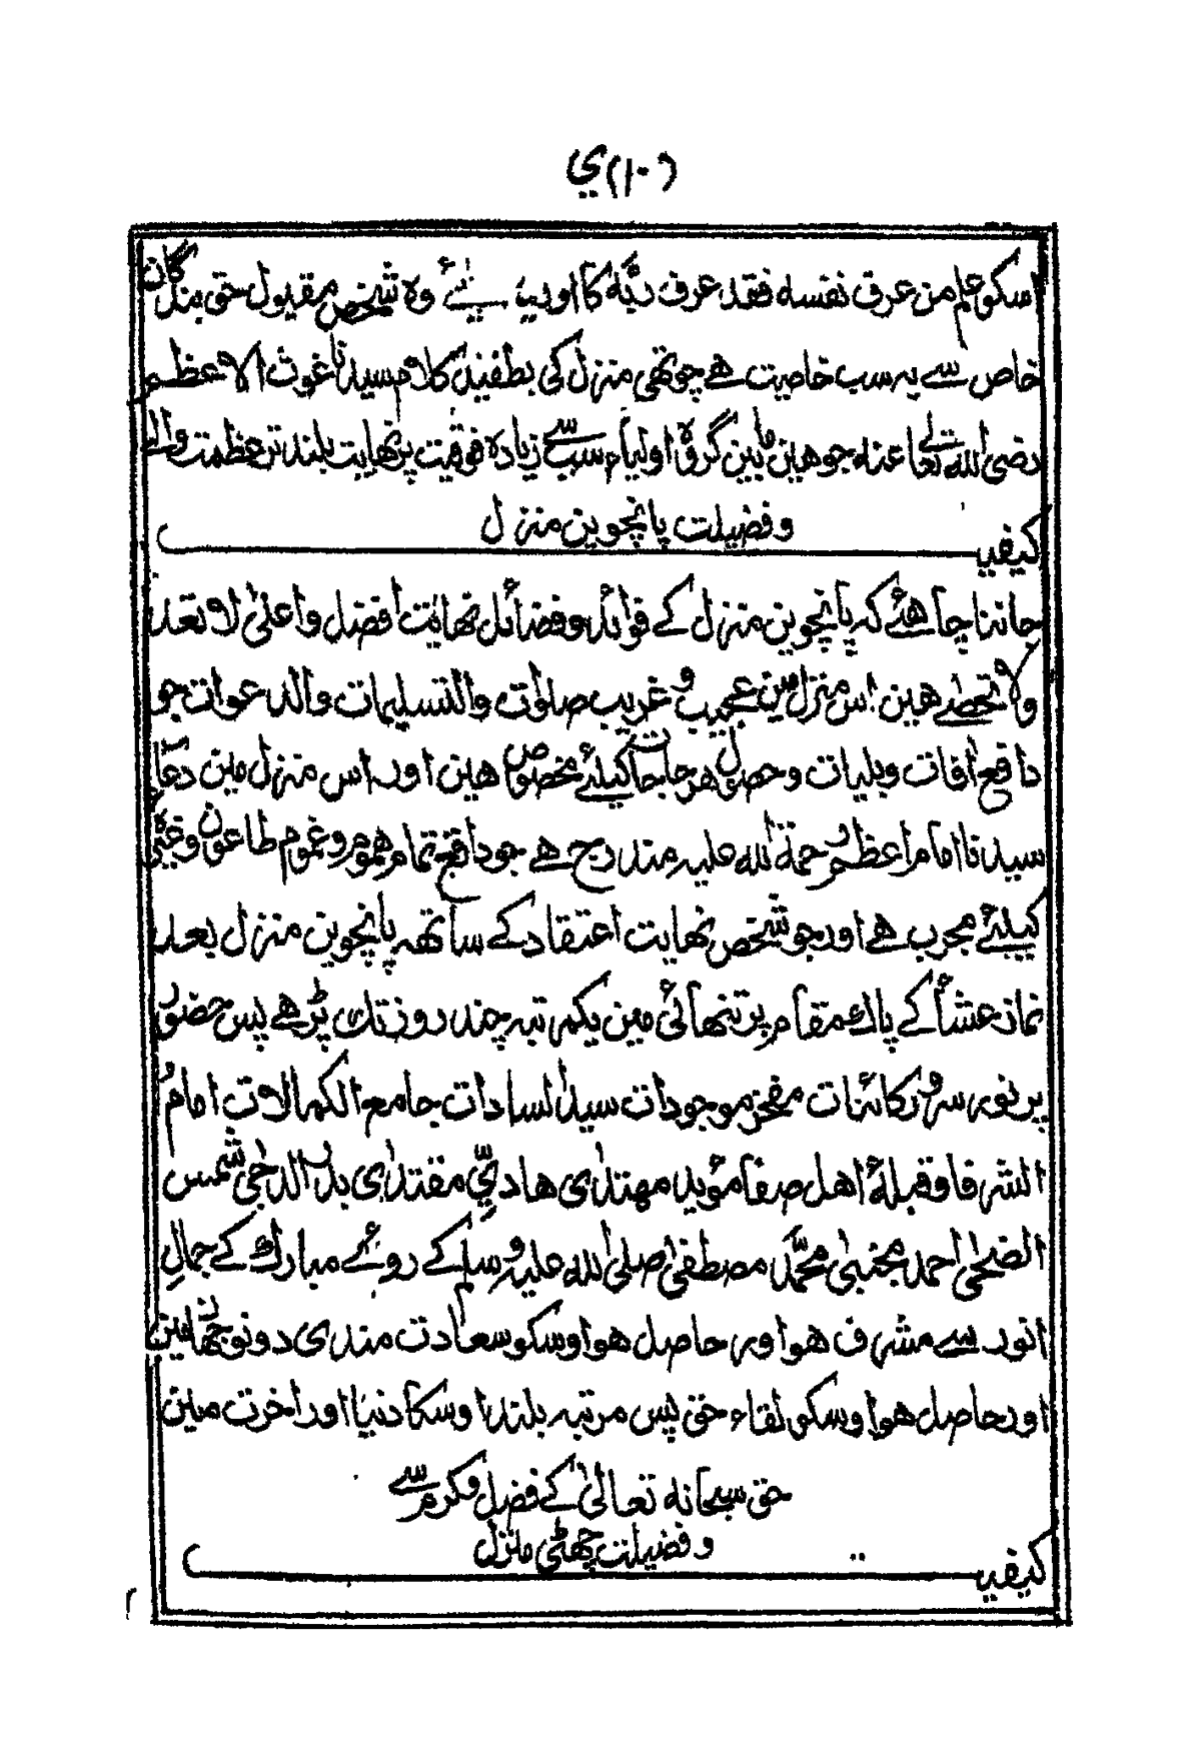 (۱۰) ي
اسکو علم من عرف نفسه فقد عرف ربّه کا اور وہ شخص مقبول حق بندگان
خاص سے یہ سب خاصیت ہے چوتھی منزل کی بطفیل کلام سیدنا غوث الاعظم
رضی الله تعالے عنہ جو هین مابین گروہ اولیاء سب سے زیادہ فوقیت پر نهایت بلند تر عظمت والے
کیفیت و فضیلت پانچوین منزل
جاننا چاهئے که پانچوین منزل کے فوائد و فضائل نهایت افضل و اعلیٰ لا تعد
ولا تحصے هین اس منزل مین عجیب و غریب صلوٰت والتسلیمات والدعوات جو
دافع آفات و بلیات و حصول هر حاجات کیلئے مخصوص هین اور اس منزل مین دعاے
سیدنا امام اعظم رحمة الله علیه مندرج هے جو دافع تمام هموم و غموم طاعون و غیره
کیلئے مجرب هے اور جو شخص نهایت اعتقاد کے ساتهه پانچوین منزل بعد
نماز عشأ کے پاك مقام پر تنهائی مین یکمرتبه چند روز تك پڑهے پس حضور
پرنور سرور کائنات مفخر موجودات سید السادات جامع الکمالات امام
الشرفا و قبلۂ اهل صفا موید مهتدای هادئ مقتدای بدر الدجی شمس
الضحیٰ احمد مجتبیٰ محمّد مصطفیٰ صلی الله علیه و سلم کے روئے مبارك کے جمالِ
انور سے مشرف هوا ور حاصل هوا وسکو سعادت مندی دونو جهان مین
اور حاصل هوا وسکو لقاء حق پس مرتبه بلند اوسکا دنیا اور اخرت مین
حق سبحانه تعالیٰ کے فضل و کرم سے
کیفیت و فضیلت چهٹی منزل